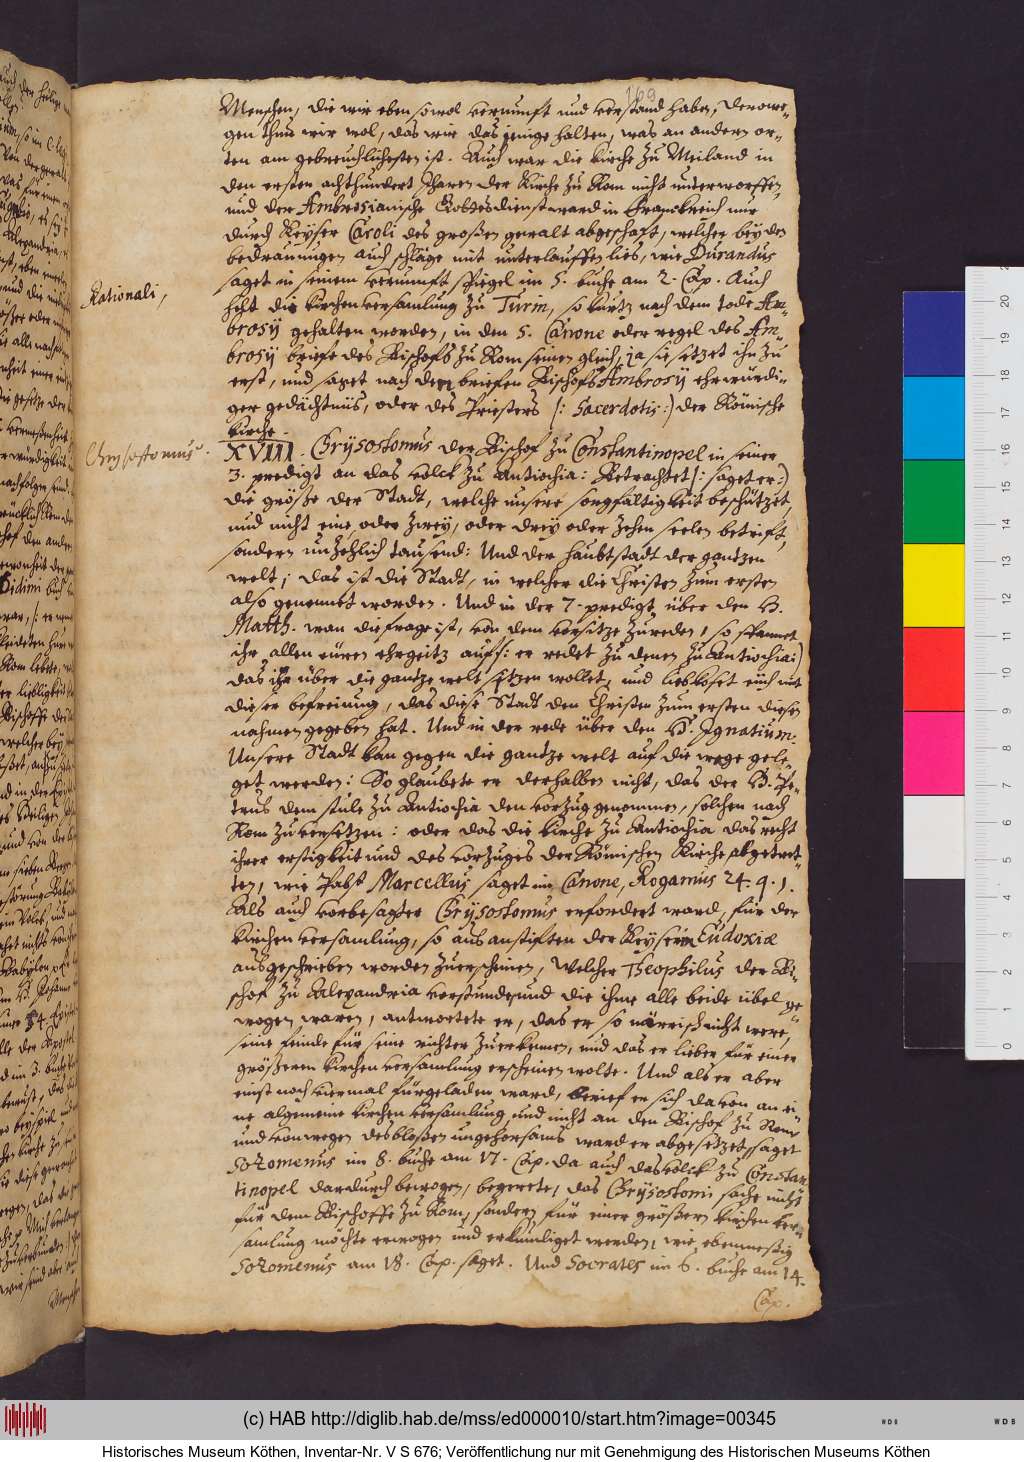 169
Menschen, die wir eben sowol vernunft und verstand haben, derowe-
gen thun wir wol, das wir das jenige halten, was an andern or-
ten am gebreuchlichsten ist. Auch war die kirche zu Meiland in
den ersten achthundert Jharen der Kirche zu Rom nicht unterworffen,
und der Ambrosianische Gottesdienst ward in Franckreich nur
durch Keyser Caroli des großen gewalt abgeschaft, welcher bey den
bedrauungen auch schläge mit unterlauffen lies, wie Durandus
saget in seinem vernunft spiegel im 5. buche am 2. Cap. Auch
helt die kirchen versamlung zu Turin, so kurtz nach dem tode Am-
brosy gehalten worden, in den 5. Canone oder regel des Am-
brosy briefe des Bischofs zu Rom seinen gleich, ja sie setzet ihn zu
erst, und saget nach den briefen Bischofs Ambrosy ehrwürdi-
ger gedächtnüs, oder des Priesters /: Sacerdotis :/ der Römische
kirche.
Rationali,
Chrysostomus.
XVIII. Chrysostomus der Bischof zu Constantinopel in seiner
3. predigt an das volck zu Antiochia: Betrachtet /: saget er :/
die größe der Stadt, welche unsere sorgfältigkeit beschützet,
und nicht eine oder zwey, oder drey oder zehen seelen betrift,
sondern unzehlich tausend: Und der haubtstadt der gantzen
welt; das ist die Stadt, in welcher die Christen zum ersten
also genennet worden. Und in der 7. predigt über den H.
Matth. wan die frage ist, von dem vorsitze zureden, so spannet
ihr allen euren ehrgeitz auf /: er redet zu denen zu Antiochia :/
das ihr über die gantze welt sitzen wollet, und liebkoset euch mit
dieser befreiung, das diese Stadt den Christen zum ersten diesen
nahmen gegeben hat. Und in der rede über den H. Ignatium:
Unsere Stadt kan gegen die gantze welt auf die wage gele-
get werden: So glaubete er derhalben nicht, das der H. Pe-
trus dem stule zu Antiochia den vorzug genommen, solchen nach
Rom zu versetzen: oder das die kirche zu Antiochia das recht
ihrer erstigkeit und des vorzuges der Römischen Kirche abgetret-
ten, wie Pabst Marcellus saget im Canone, Rogamus 24. q. 1.
Als auch vorbesagter Chrysostomus erfordert ward, für der
kirchen versamlung, so aus anstiften der Keyserin Eudoxiæ
ausgeschrieben worden zuerscheinen, welcher Theophilus der Bi-
schof zu Alexandria vorstunde, und die ihme alle beide übel ge-
wogen waren, antwortete er, das er so närrisch nicht were,
seine feinde für seine richter zuerkennen, und das er lieber für einer
größeren kirchen versamlung erscheinen wolte. Und als er aber
einst noch viermal fürgeladen ward, berief er sich davon an ei-
ne algemeine kirchen versamlung und nicht an den Bischof zu Rom,
und von wegen des bloßen ungehorsams ward er abgesetzet, saget
Sozomenus im 8. buche am 17. Cap. da auch das volck zu Constan
tinopel dardurch bewogen, begerete, das Chrysostomi sache nicht
für dem Bischoffe zu Rom, sondern für einer größern kirchen ver-
samlung möchte erwogen und erkundiget werden, wie ebenmeßig
Sozomenus am 18. Cap. saget. Und Socrates im 6. buche am 14.
Cap.
(c) HAB http://diglib.hab.de/mss/ed000010/start.htm?image=00345
Historisches Museum Köthen, Inventar-Nr. V S 676; Veröffentlichung nur mit Genehmigung des Historischen Museums Köthen